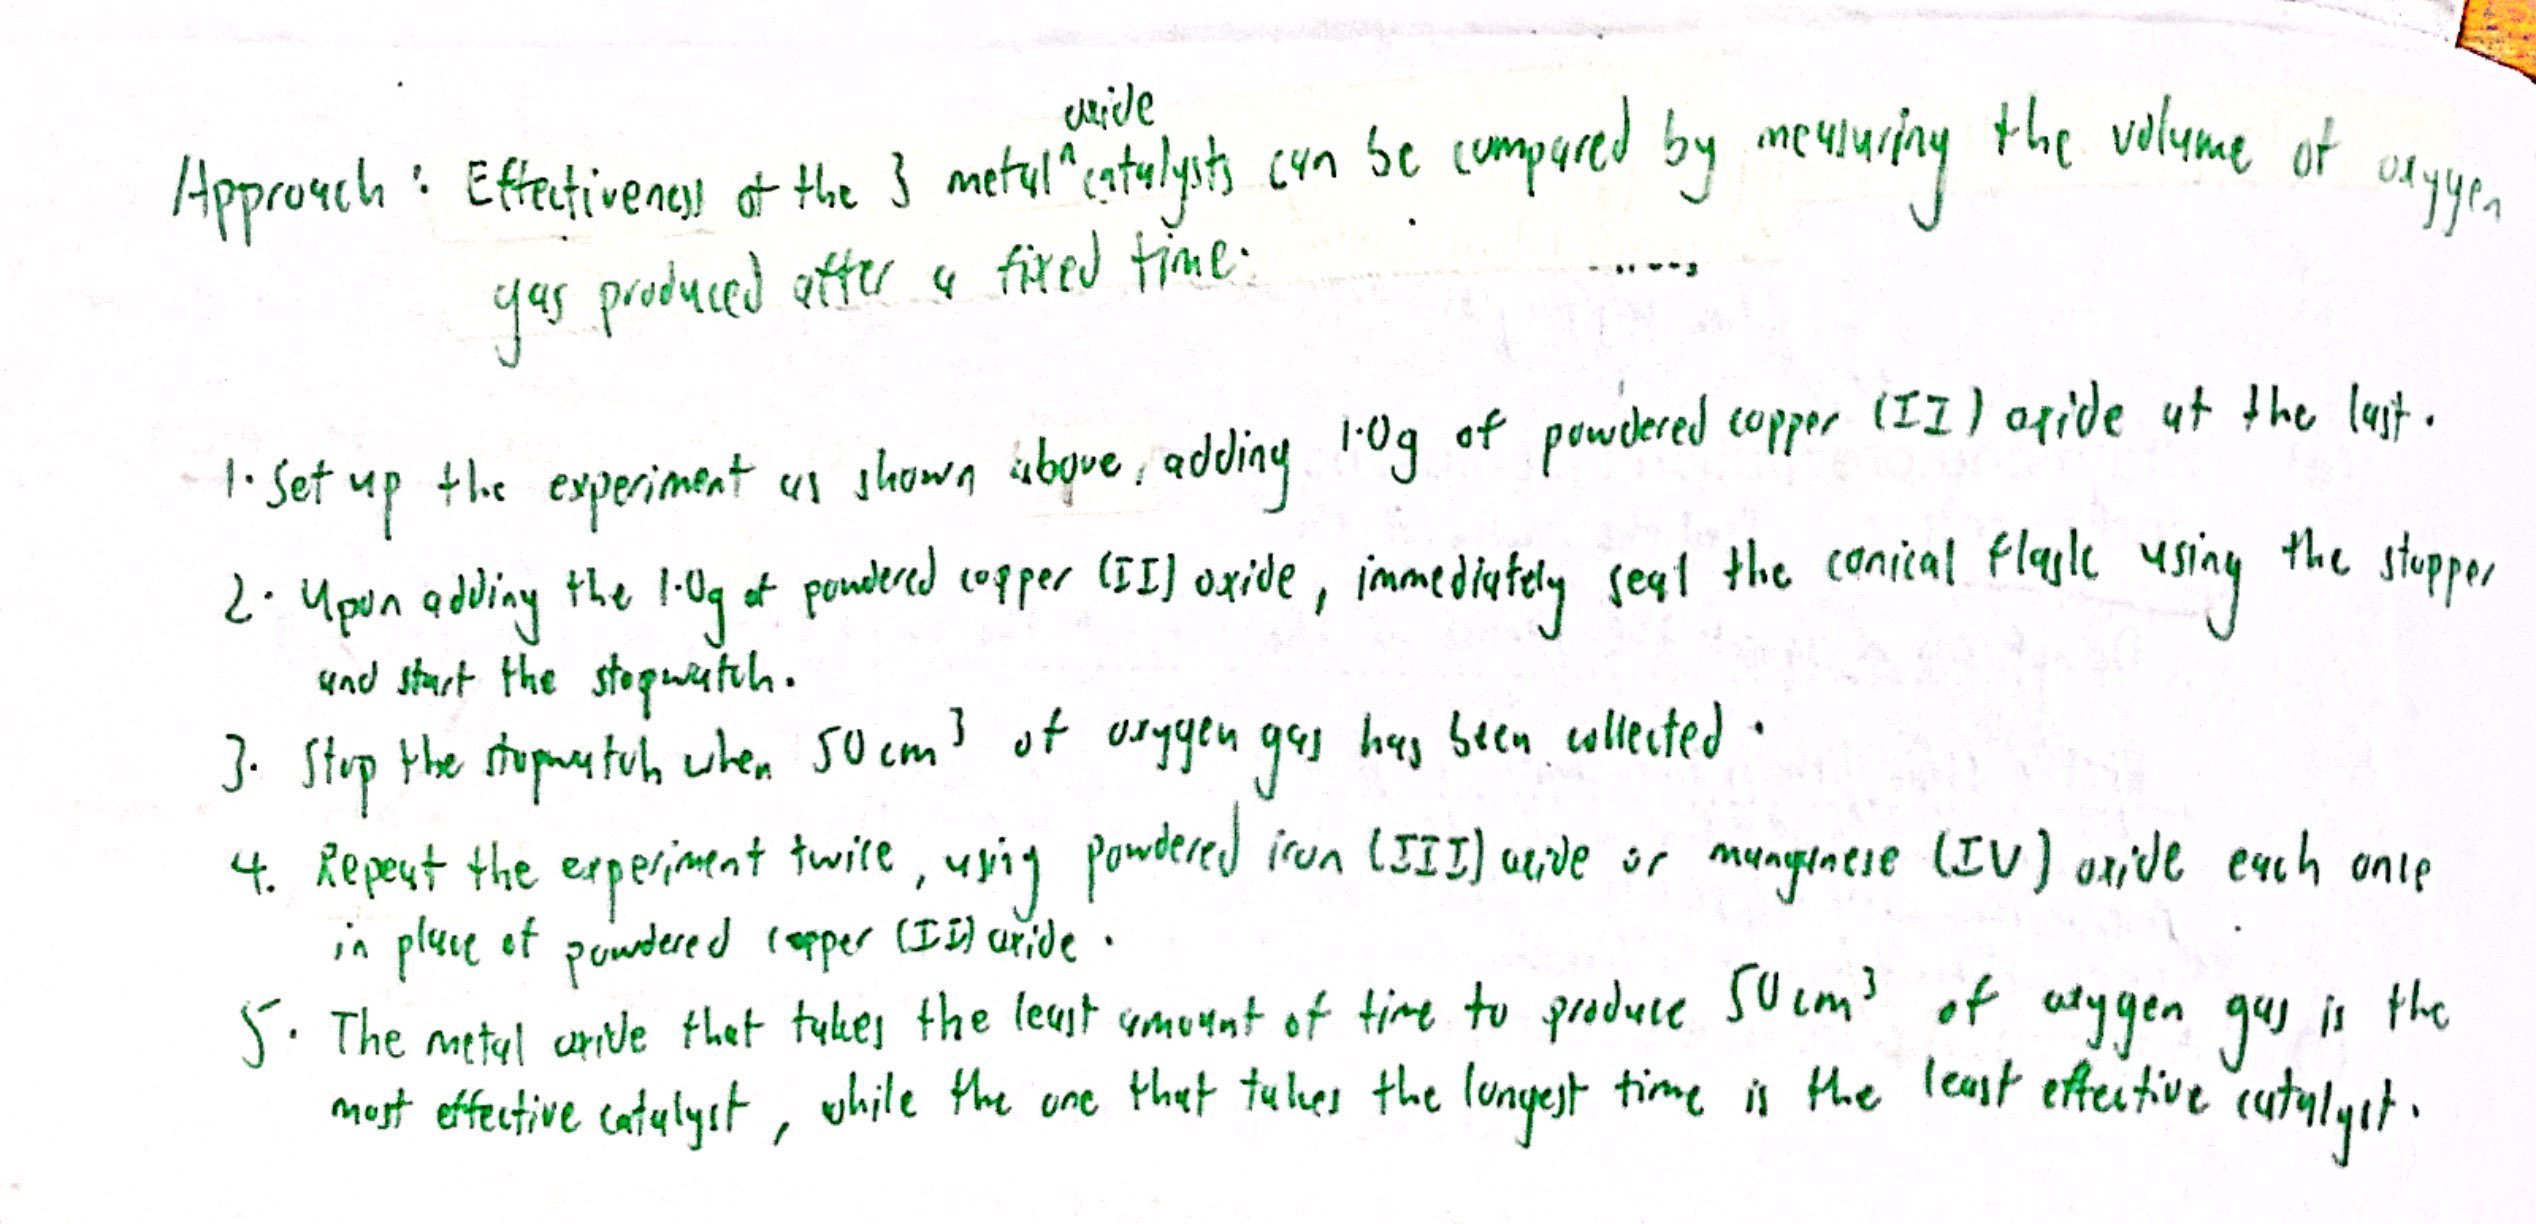 oxide
Approach : Effectiveness of the 3 metal ^ catalysts can be compared by measuring the volume of oxygen
gas produced after a fixed time.
1. Set up the experiment as shown above, adding 1.0g of powdered copper (II) oxide at the last.
2. Upon adding the 1.0g of powdered copper (II) oxide, immediately seal the conical flask using the stopper
and start the stopwatch.
3. Stop the stopwatch when 50 cm³ of oxygen gas has been collected.
4. Repeat the experiment twice, using powdered iron (III) oxide or manganese (IV) oxide each once
in place of powdered copper (II) oxide.
5. The metal oxide that takes the least amount of time to produce 50 cm³ of oxygen gas is the
most effective catalyst, while the one that takes the longest time is the least effective catalyst.